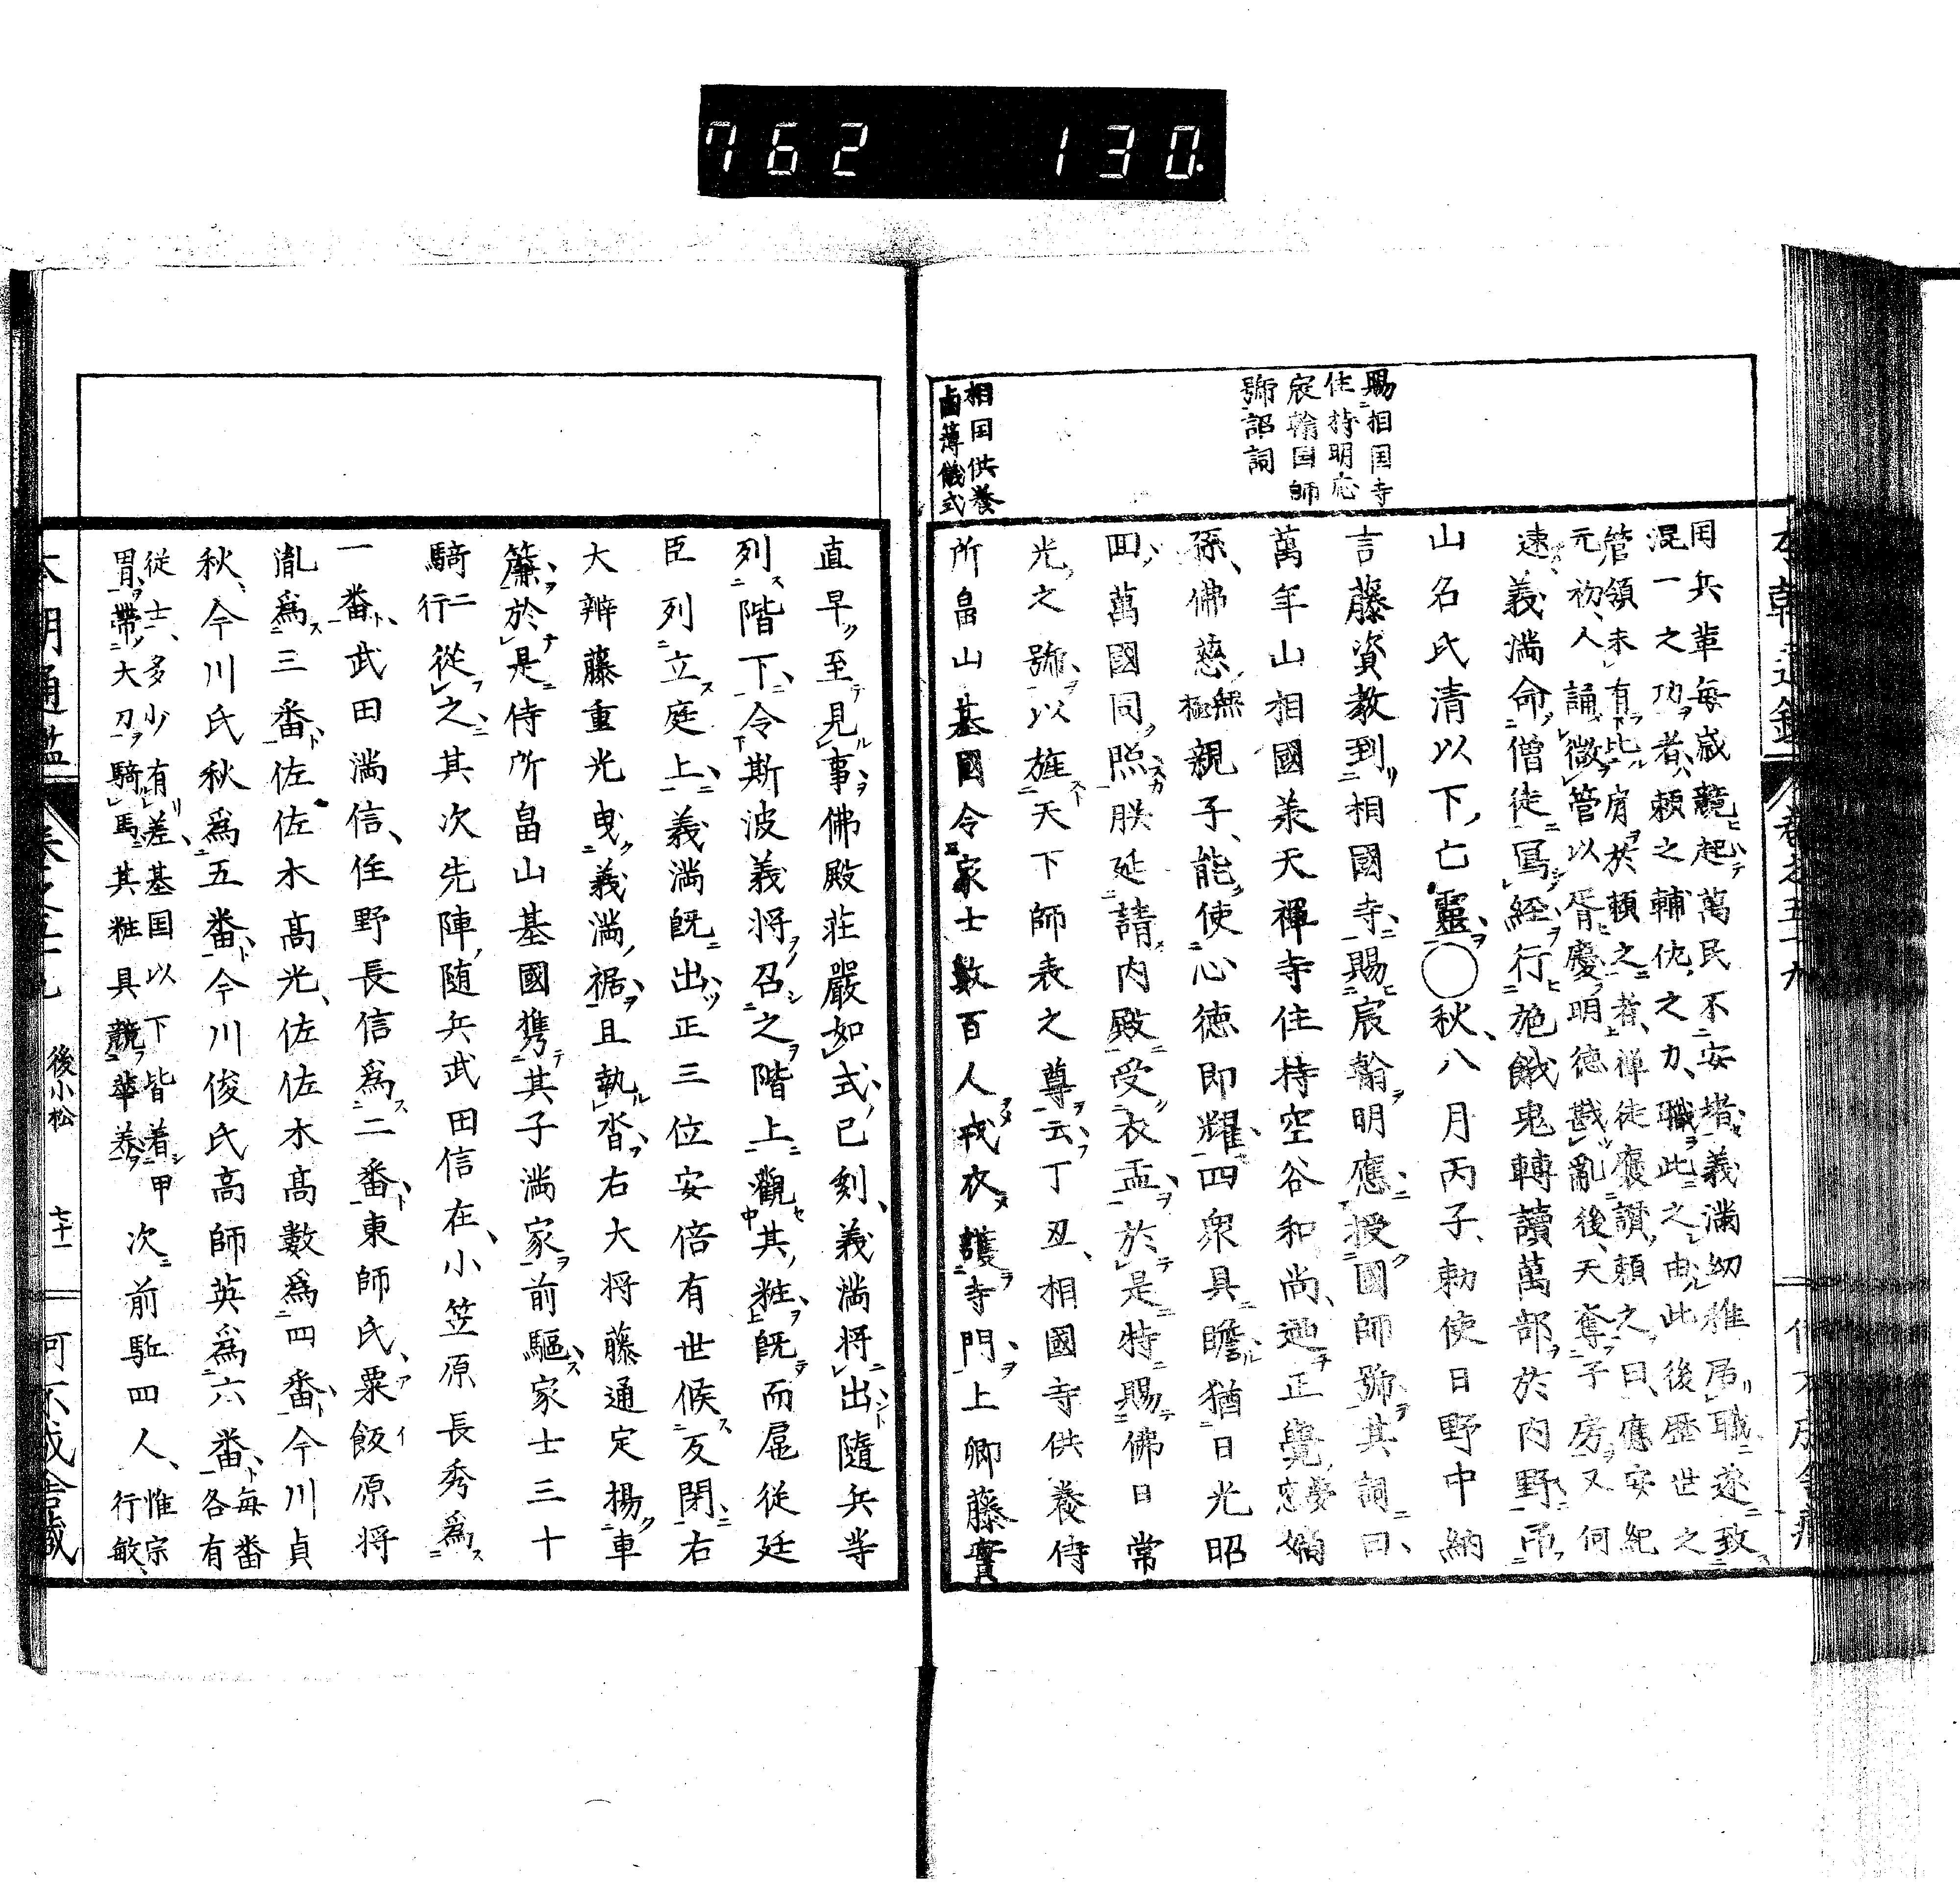 762 130
賜相国寺
住持明応
宸翰国師
號詔詞
相国供養
鹵簿儀式
用兵輩每歳競起萬民不安堵義満幼稚居職遂致
混一之功者頼之輔佐之力職此之由此後歴世之
管領未有比肩於頼之者禅徒褒讃頼之曰應安紀
元初人誦徴管以胥慶明徳戡亂後天奪子房又何
速義満命僧徒冩經行施餓鬼轉讀萬部於内野弔
山名氏清以下亡靈○秋八月丙子勅使日野中納
言藤資教到相國寺賜宸翰明應授國師號其詞曰
萬年山相國承天禅寺住持空谷和尚廼正覺夢窓嫡
孫佛慈無極親子能使心徳即耀四衆具瞻猶日光昭
回萬國同照朕延請内殿受衣盂於是特賜佛日常
光之號以旌天下師表之尊云丁丑相國寺供養侍
所畠山基國令家士數百人戎衣護寺門上卿藤實
直早至見事佛殿莊嚴如式已刻義満将出隨兵等
列階下令斯波義将召之階上觀其粧既而扈從廷
臣列立庭上義満既出正三位安倍有世候反閇右
大辨藤重光曳義満裾且執沓右大将藤通定揚車
簾於是侍所畠山基國携其子満家前驅家士三十
騎二行從之其次先陣随兵武田信在小笠原長秀爲
一番武田満信住野長信爲二番東師氏粟飯原将
胤爲三番佐佐木高光佐佐木高數爲四番今川貞
秋今川氏秋爲五番今川俊氏高師英爲六番每番各有
從士多少有差基国以下皆着甲
冑帶大刀騎馬其粧具競華恭
次前駈四人惟宗行敏
本朝通鑑
後小松
七十一